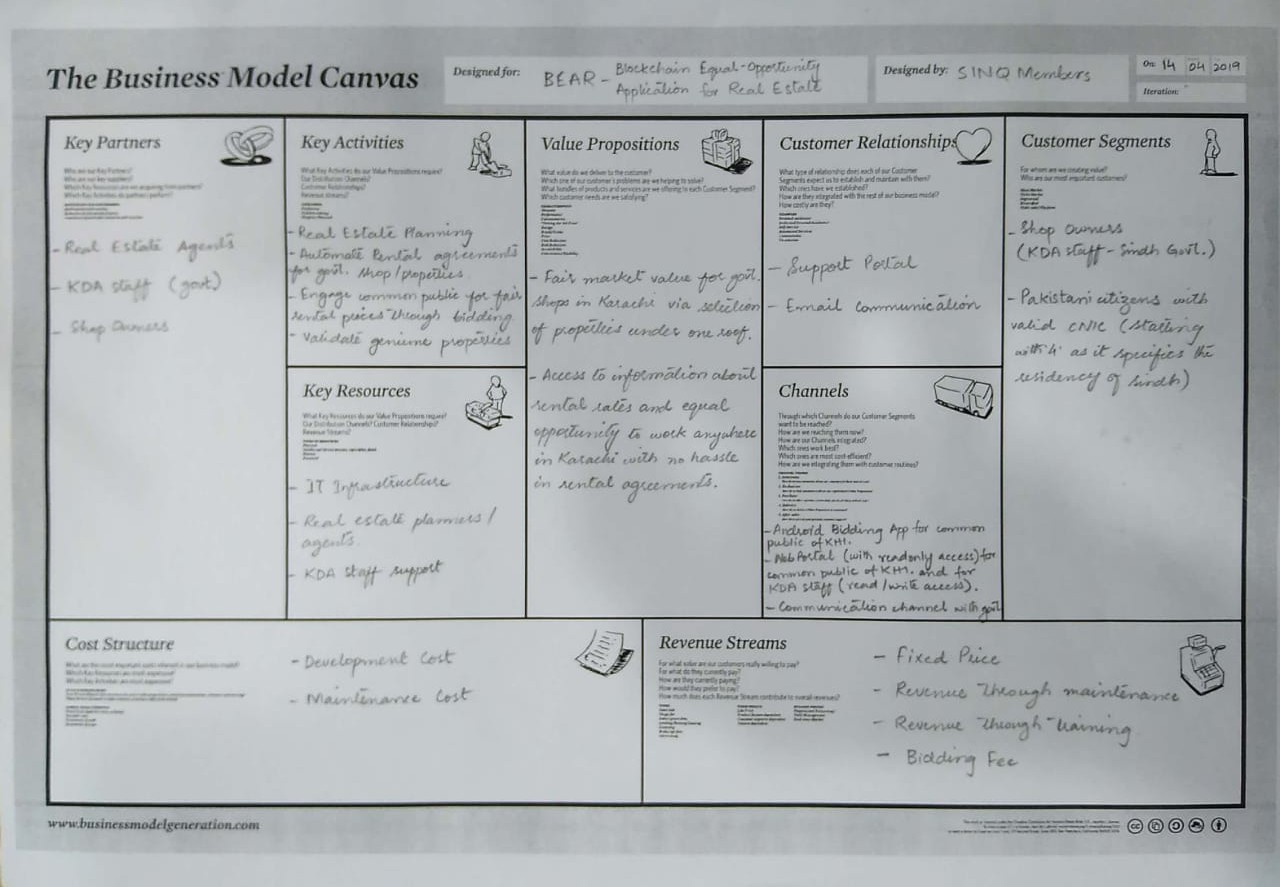 The Business Model Canvas
Designed for:
BEAR - Blockchain Equal-Opportunity
Application for Real Estate
Designed by:
SINQ Members
On: 14 04 2019
Iteration:
Key Partners
Who are our Key Partners?
Who are our key suppliers?
Which Key Resources are we acquiring from partners?
Which Key Activities do partners perform?
- Real Estate Agents
- KDA staff (govt)
- Shop Owners
Key Activities
What Key Activities do our Value Propositions require?
Our Distribution Channels?
Customer Relationships?
Revenue streams?
- Real Estate Planning
- Automate Rental agreements
for govt. shop/properties
- Engage common public for fair
rental prices through bidding.
- Validate genuine properties
Key Resources
What Key Resources do our Value Propositions require?
Our Distribution Channels? Customer Relationships?
Revenue Streams?
- IT Infrastructure
- Real estate planners /
agents.
- KDA staff support
Value Propositions
What value do we deliver to the customer?
Which one of our customer's problems are we helping to solve?
What bundles of products and services are we offering to each Customer Segment?
Which customer needs are we satisfying?
- Fair market value for govt.
shops in Karachi via selection
of properties under one roof.
- Access to information about
rental rates and equal
opportunity to work anywhere
in Karachi with no hassle
in rental agreements.
Customer Relationships
What type of relationship does each of our Customer
Segments expect us to establish and maintain with them?
Which ones have we established?
How are they integrated with the rest of our business model?
How costly are they?
- Support Portal
- E-mail communication
Channels
Through which Channels do our Customer Segments
want to be reached?
How are we reaching them now?
How are our Channels integrated?
Which ones work best?
Which ones are most cost-efficient?
How are we integrating them with customer routines?
- Android Bidding App for common
public of KHI.
- Web Portal (with readonly access) for
common public of KHI. and for
KDA staff (read/write access).
- Communication channel with govt
Customer Segments
For whom are we creating value?
Who are our most important customers?
- Shop Owners
(KDA staff - Sindh Govt.)
- Pakistani citizens with
valid CNIC (starting
with '4' as it specifies the
residency of Sindh)
Cost Structure
What are the most important costs inherent in our business model?
Which Key Resources are most expensive?
Which Key Activities are most expensive?
- Development Cost
- Maintenance Cost
Revenue Streams
For what value are our customers really willing to pay?
For what do they currently pay?
How are they currently paying?
How would they prefer to pay?
How much does each Revenue Stream contribute to overall revenues?
- Fixed Price
- Revenue through maintenance
- Revenue through training
- Bidding Fee
www.businessmodelgeneration.com